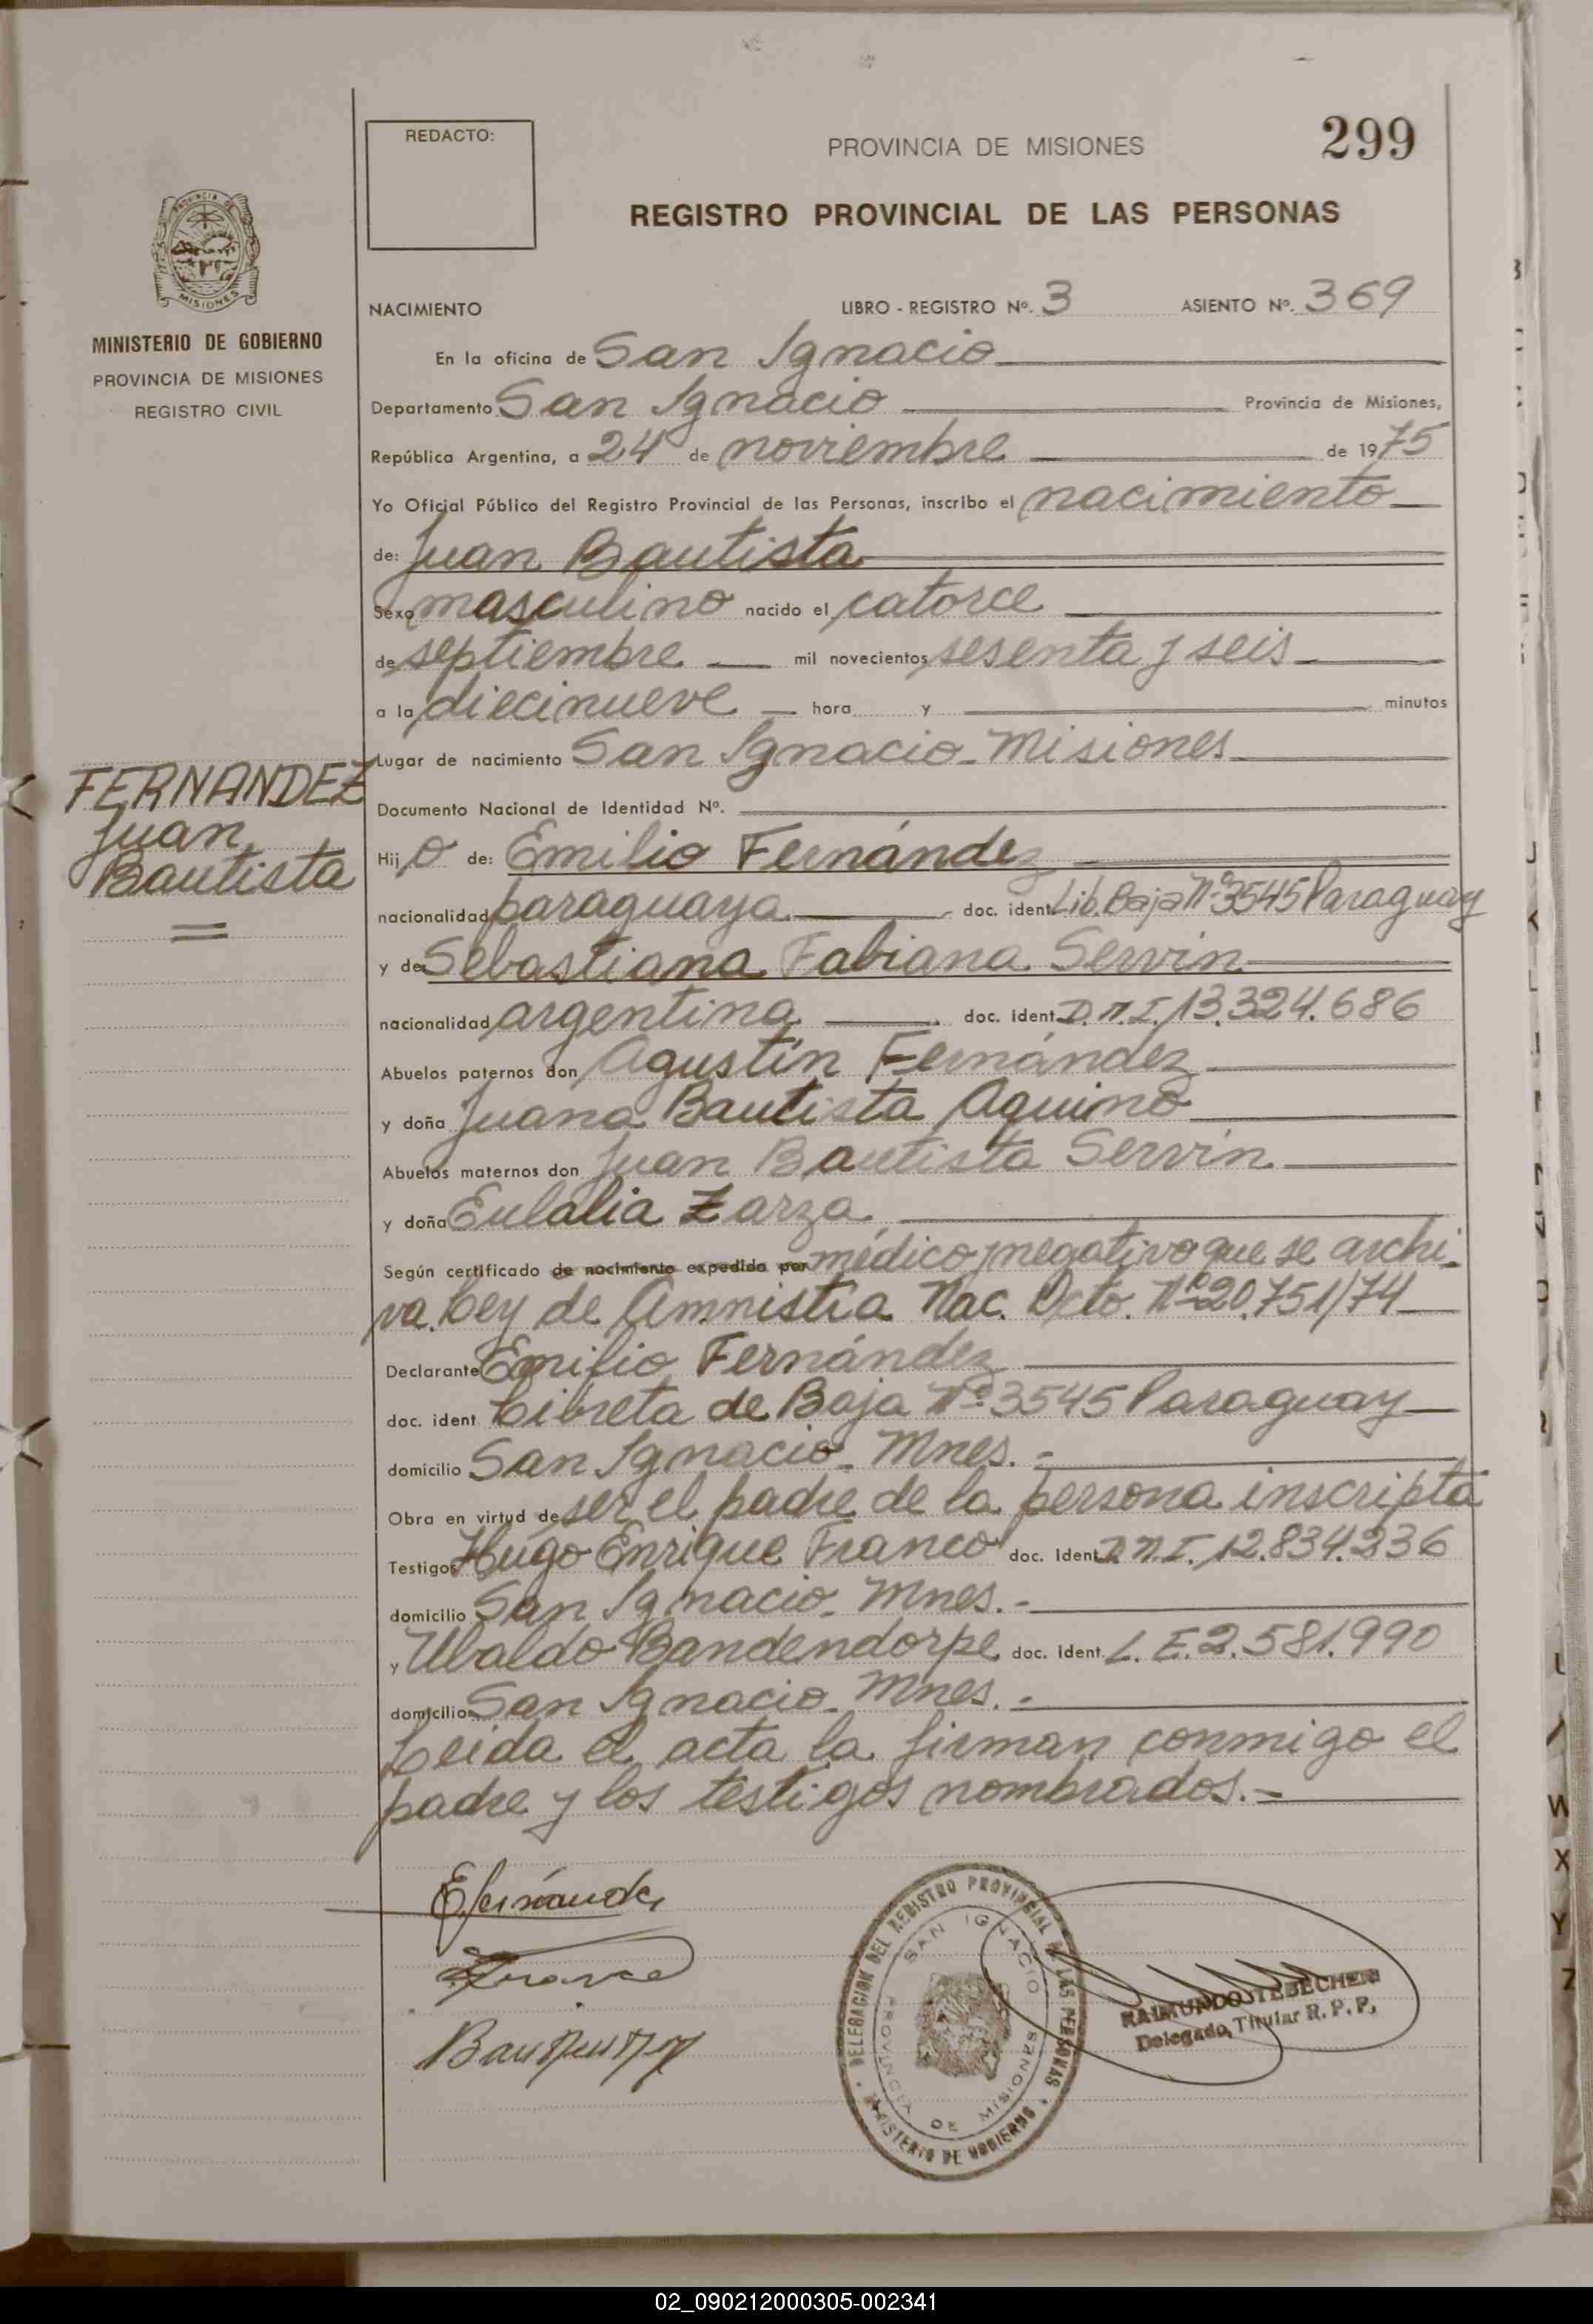 REDACTO:
PROVINCIA DE MISIONES
299
REGISTRO PROVINCIAL DE LAS PERSONAS
PROVINCIA DE MISIONES
MINISTERIO DE GOBIERNO
PROVINCIA DE MISIONES
REGISTRO CIVIL
NACIMIENTO LIBRO - REGISTRO Nº. 3 ASIENTO Nº. 369
En la oficina de San Ignacio
Departamento San Ignacio Provincia de Misiones,
República Argentina, a 24 de noviembre de 1975
Yo Oficial Público del Registro Provincial de las Personas, inscribo el nacimiento
de: Juan Bautista
Sexo masculino nacido el catorce
de septiembre mil novecientos sesenta y seis
a la diecinueve hora y minutos
Lugar de nacimiento San Ignacio - Misiones
FERNANDEZ
Juan
Bautista
Documento Nacional de Identidad Nº.
Hijo de: Emilio Fernández
nacionalidad paraguaya doc. ident. Lib. Baja Nº 3545 Paraguay
y de: Sebastiana Fabiana Servin
nacionalidad argentina doc. ident. D.N.I. 13.324.686
Abuelos paternos don Agustín Fernández
y doña Juana Bautista Aquino
Abuelos maternos don Juan Bautista Servin
y doña Eulalia Zarza
Según certificado de nacimiento expedido por médico negativo que se archi-
va. Ley de Amnistía Nac. Dcto. Nº 20.751/74
Declarante Emilio Fernández
doc. ident Libreta de Baja Nº 3545 Paraguay
domicilio San Ignacio - Mnes. -
Obra en virtud de ser el padre de la persona inscripta
Testigos Hugo Enrique Franco doc. Ident. D.N.I. 12.834.336
domicilio San Ignacio - Mnes. -
y Ubaldo Bandendorpe doc. ident. L.E. 2.581.990
domicilio San Ignacio - Mnes. -
Leida el acta la firman conmigo el
padre y los testigos nombrados. -
EFernández
Franco
DELEGACION DEL REGISTRO PROVINCIAL DE LAS PERSONAS
SAN IGNACIO
PROVINCIA DE MISIONES
MINISTERIO DE GOBIERNO
RAIMUNDO TEBECHERI
Delegado Titular R. P. P.
02_090212000305-002341